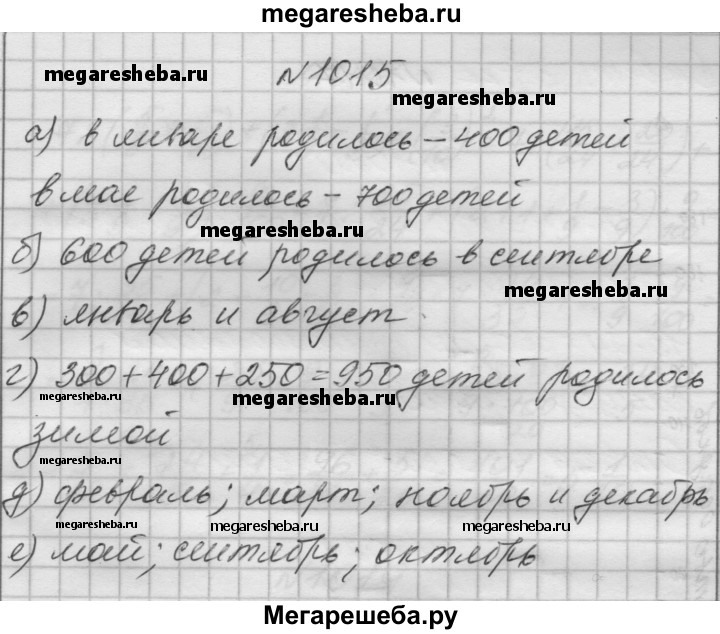 megaresheba.ru
megaresheba.ru
№1015
megaresheba.ru
а) в январе родилось – 400 детей
в мае родилось – 700 детей
megaresheba.ru
б) 600 детей родилось в сентябре
megaresheba.ru
в) январь и август.
г) 300 + 400 + 250 = 950 детей родилось
megaresheba.ru
megaresheba.ru
зимой
megaresheba.ru
д) февраль; март; ноябрь и декабрь
megaresheba.ru megaresheba.ru megaresheba.ru
е) май; сентябрь; октябрь
Мегарешеба.ру